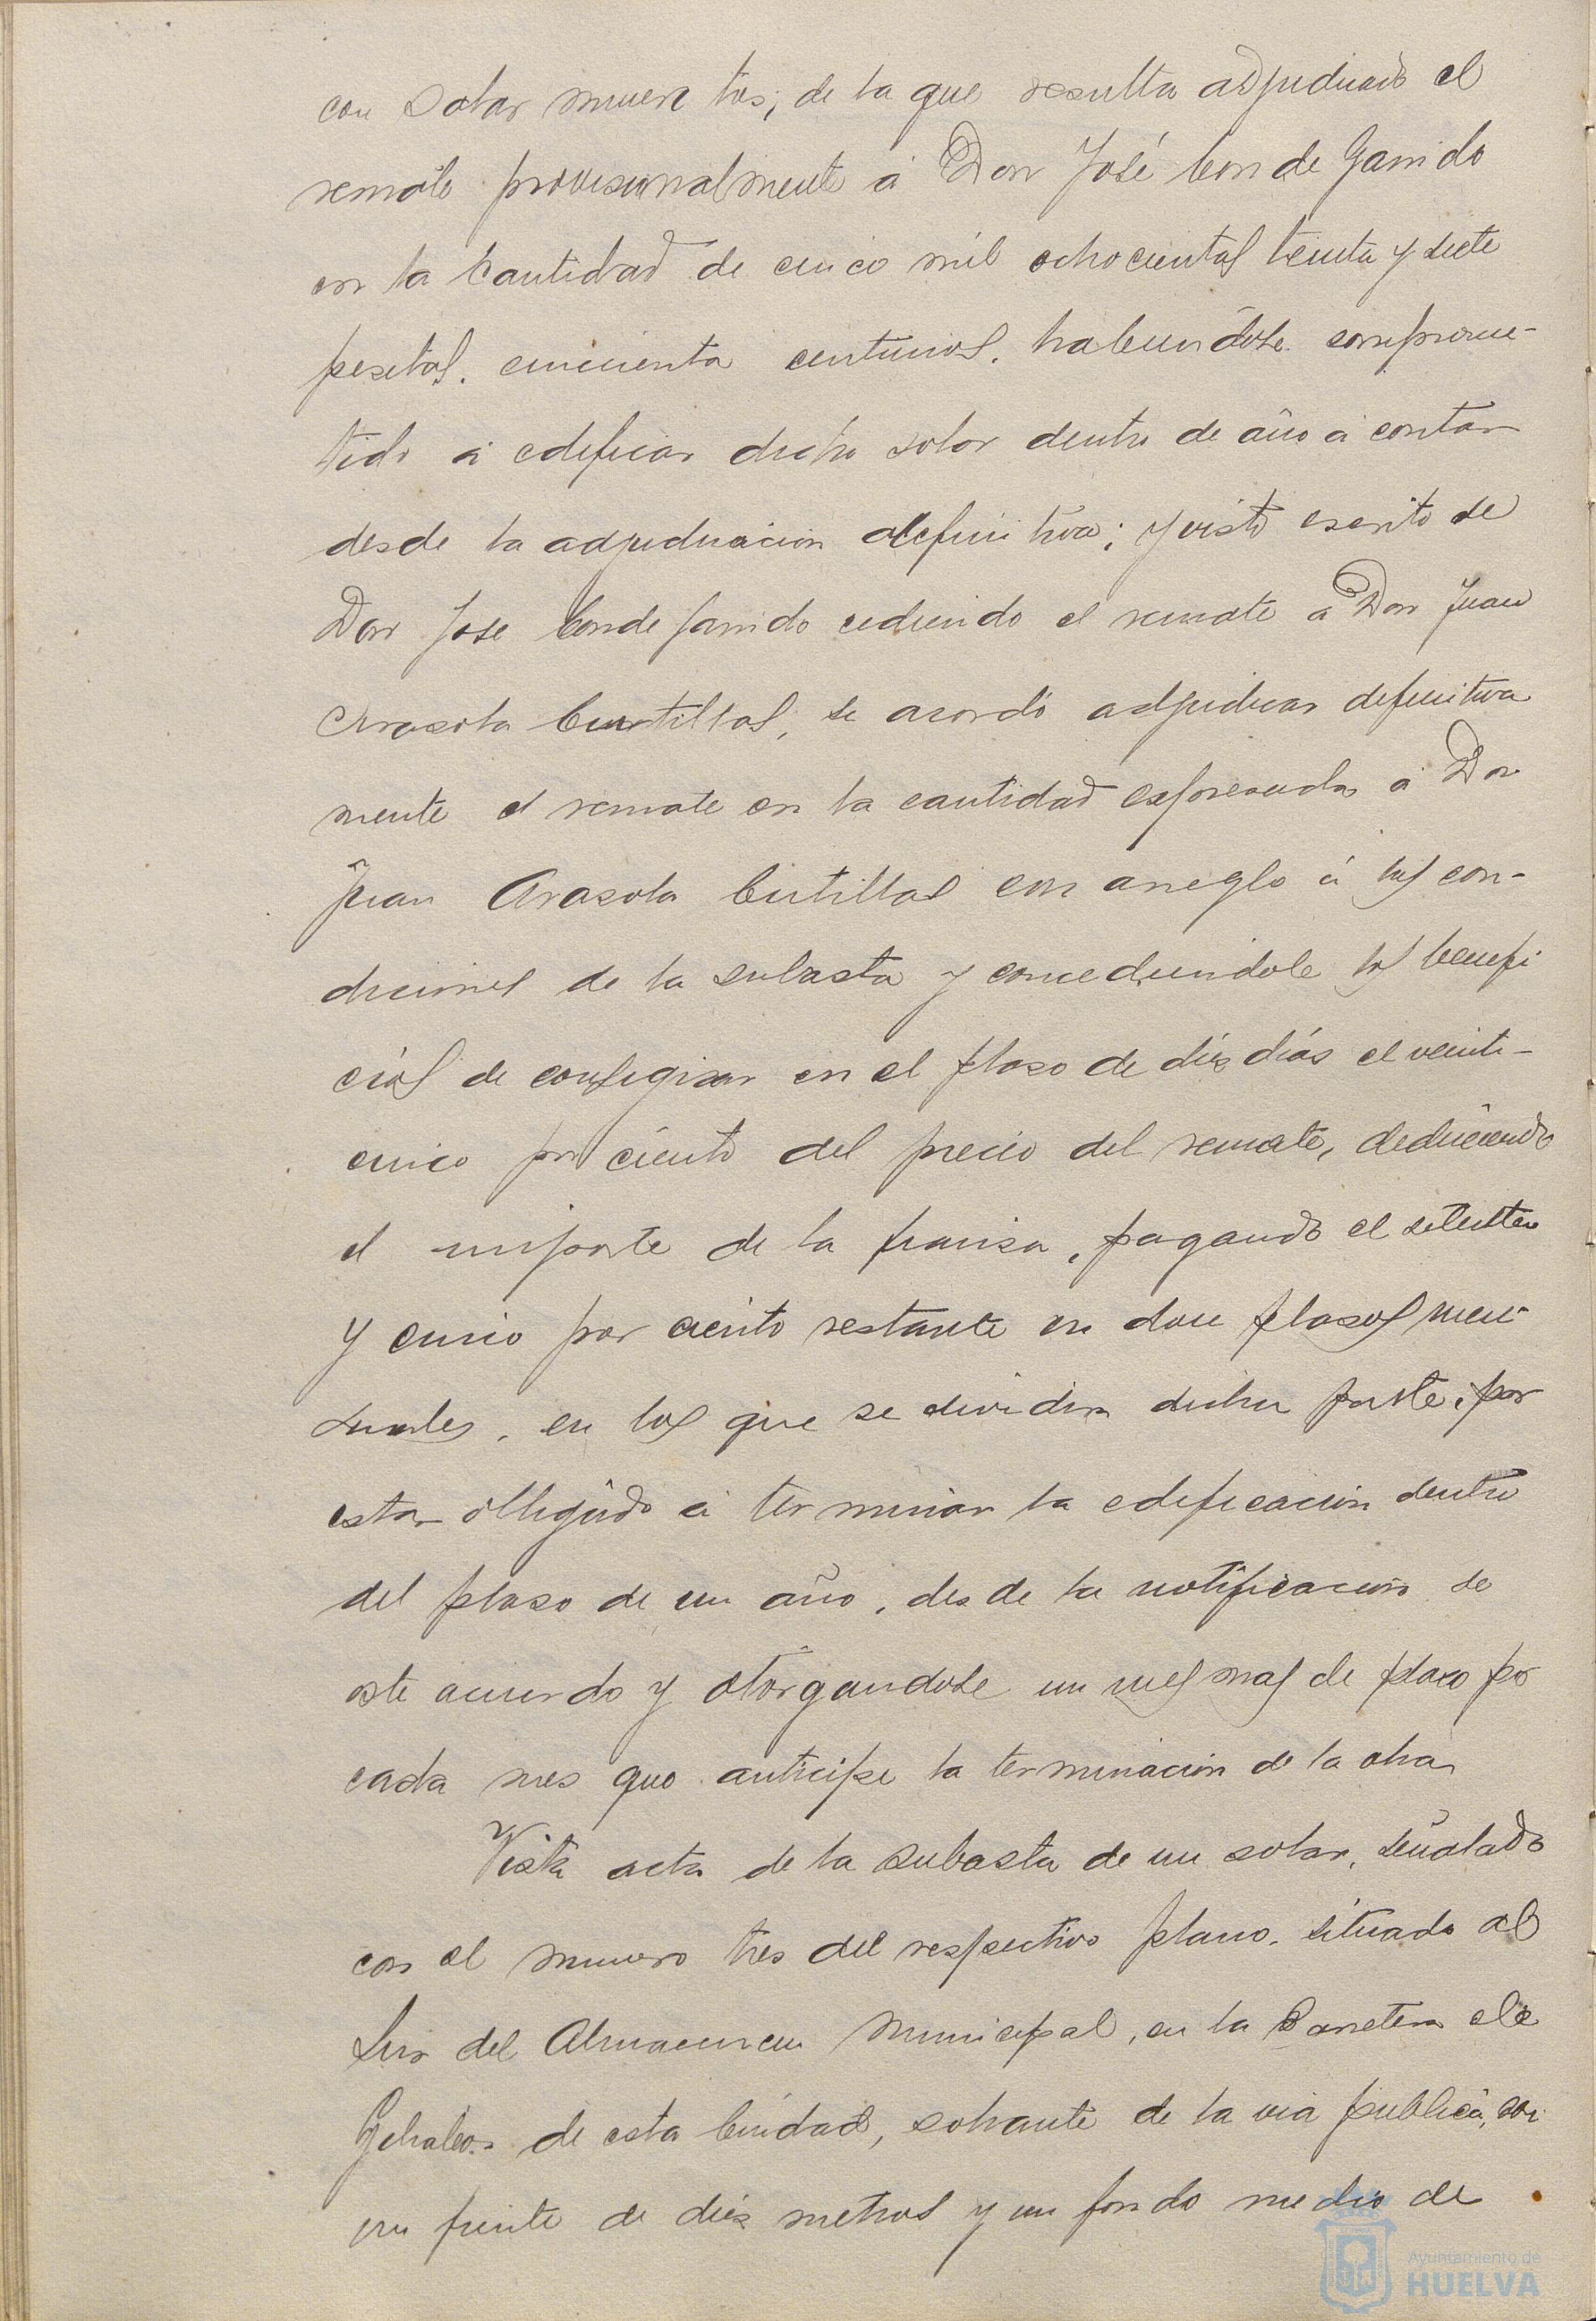 con Solar muertos; de la que resulta adjudicado el
remate provisionalmente á Don José Conde Garrido
en la Cantidad de cinco mil ochocientas treinta y siete
pesetas. cincuenta centimos. habiendose comprome-
tido á edificar dicho solar dentro de año á contar
desde la adjudicacion definitiva; y visto escrito de
Don Jose Conde Garrido cediendo el remate a Don Juan
Arazola Cintillas, se acordó adjudicar definitiva
mente el remate en la cantidad expresada á Don
Juan Arazola Cutillas con arreglo á las con-
diciones de la subasta y concediendole los benefi
cios de consignar en el plaso de diés dias el veinti-
cinco por ciento del precio del remate, deduciendo
el importe de la fianza, pagando el setenta
y cinco por ciento restante en doce plasos men-
suales, en los que se dividira dicha parte, por
estar obligado á terminar la edificacion dentro
del plaso de un año, desde la notificacion de
este acuerdo y otorgandose un mes mas de plaso por
cada mes que anticipe la terminacion de la obra
Vista acta de la subasta de un solar, señalado
con el numero tres del respectivo plano, situado al
Sur del Almacen Municipal, en la Carretera de
Gibraleon de esta Ciudad, sobrante de la via publica, con
un frente de diés metros y un fondo medio de
Ayuntamiento de
HUELVA